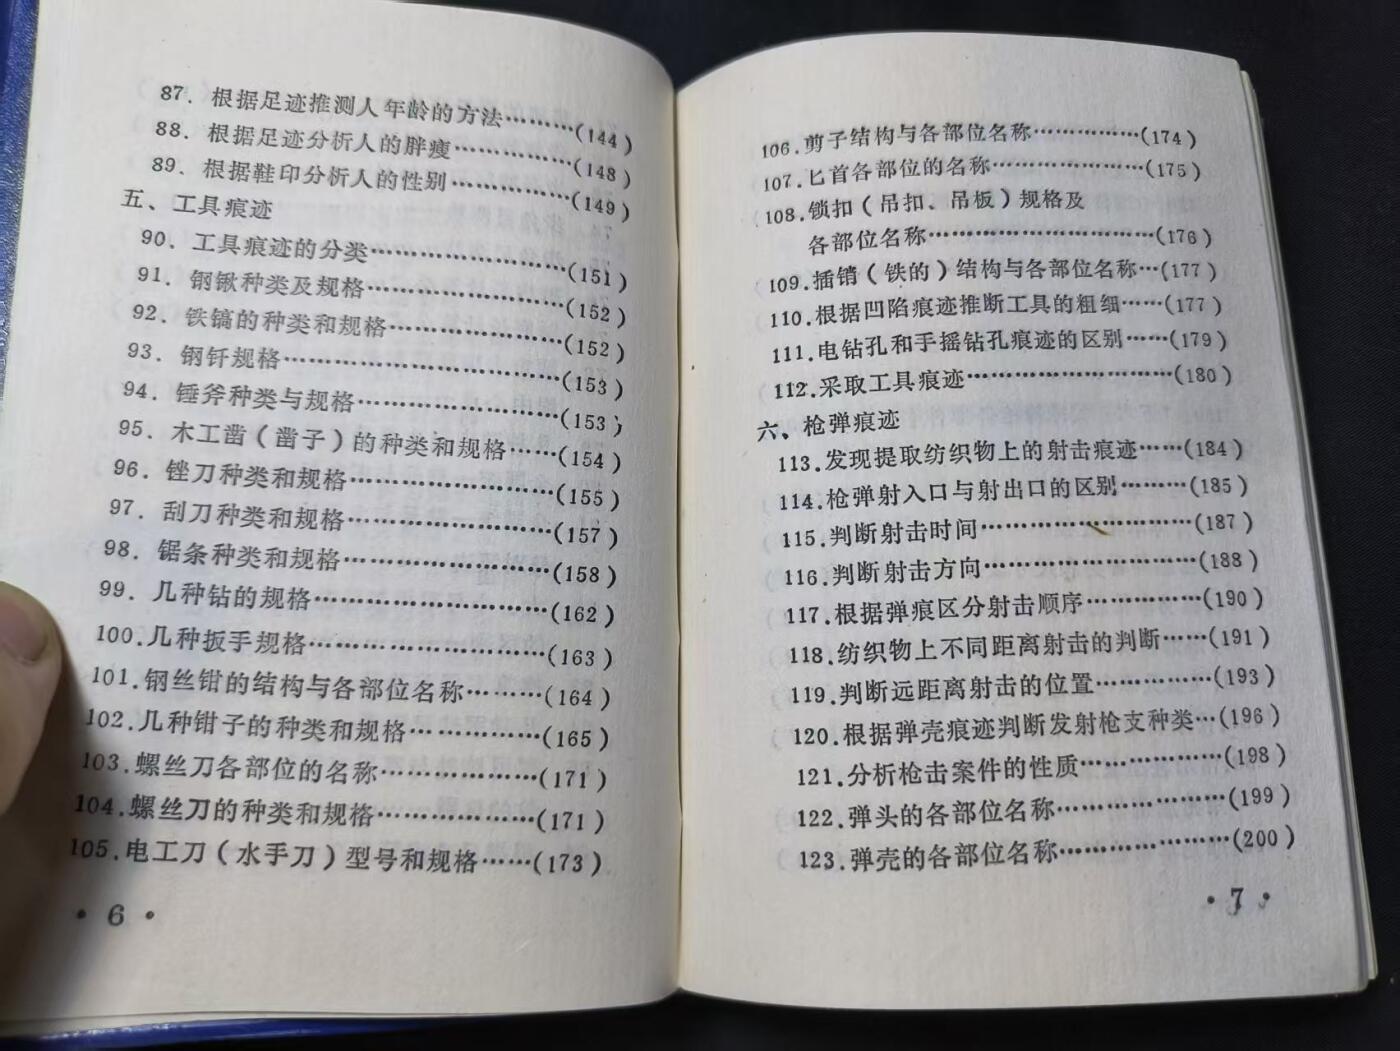 87. 根据足迹推测人年龄的方法…………(144)
88. 根据足迹分析人的胖瘦……………(148)
89. 根据鞋印分析人的性别……………(149)
五、工具痕迹
90. 工具痕迹的分类………………………(151)
91. 钢锹种类及规格………………………(152)
92. 铁镐的种类和规格……………………(152)
93. 钢钎规格………………………………(153)
94. 锤斧种类与规格………………………(153)
95. 木工凿（凿子）的种类和规格……(154)
96. 锉刀种类和规格………………………(155)
97. 刮刀种类和规格………………………(157)
98. 锯条种类和规格………………………(158)
99. 几种钻的规格…………………………(162)
100. 几种扳手规格…………………………(163)
101. 钢丝钳的结构与各部位名称………(164)
102. 几种钳子的种类和规格……………(165)
103. 螺丝刀各部位的名称………………(171)
104. 螺丝刀的种类和规格………………(171)
105. 电工刀（水手刀）型号和规格……(173)
·6·
106. 剪子结构与各部位名称……………(174)
107. 匕首各部位的名称…………………(175)
108. 锁扣（吊扣、吊板）规格及
各部位名称…………………………(176)
109. 插销（铁的）结构与各部位名称…(177)
110. 根据凹陷痕迹推断工具的粗细……(177)
111. 电钻孔和手摇钻孔痕迹的区别……(179)
112. 采取工具痕迹………………………(180)
六、枪弹痕迹
113. 发现提取纺织物上的射击痕迹……(184)
114. 枪弹射入口与射出口的区别………(185)
115. 判断射击时间………………………(187)
116. 判断射击方向………………………(188)
117. 根据弹痕区分射击顺序……………(190)
118. 纺织物上不同距离射击的判断……(191)
119. 判断远距离射击的位置……………(193)
120. 根据弹壳痕迹判断发射枪支种类…(196)
121. 分析枪击案件的性质………………(198)
122. 弹头的各部位名称…………………(199)
123. 弹壳的各部位名称…………………(200)
·7·